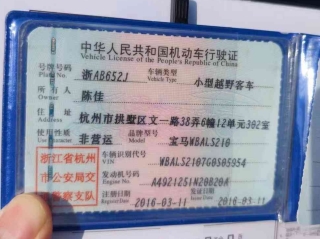 中华人民共和国机动车行驶证
Vehicle License of the People's Republic of China
号牌号码 浙AB652J 车辆类型 小型越野客车
Plate No. Vehicle Type
所有人 陈佳
Owner
住址 杭州市拱墅区文一路38弄6幢12单元302室
Address
使用性质 非营运 品牌型号 宝马WBAL5210
Use Character Model
浙江省杭州 车辆识别代号 WBAL52107G0505954
VIN
市公安局交 发动机号码 A4921251N20B20A
Engine No.
警察支队 注册日期 2016-03-11 发证日期 2016-03-11